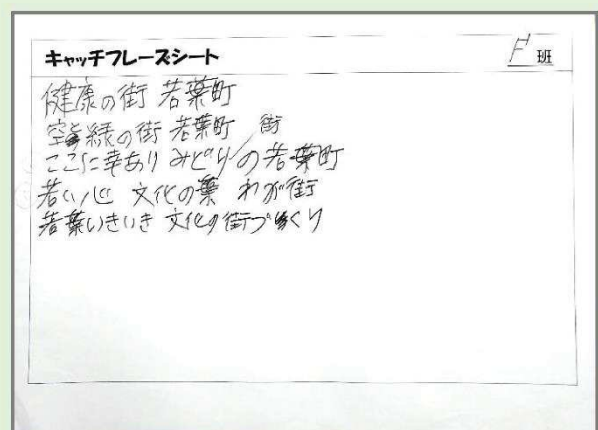 キャッチフレーズシート
F 班
健康の街 若葉町
空と緑の街 若葉町
ここに幸あり みどりの街 若葉町
若い心 文化の葉 わが街
若葉いきいき 文化の街づくり